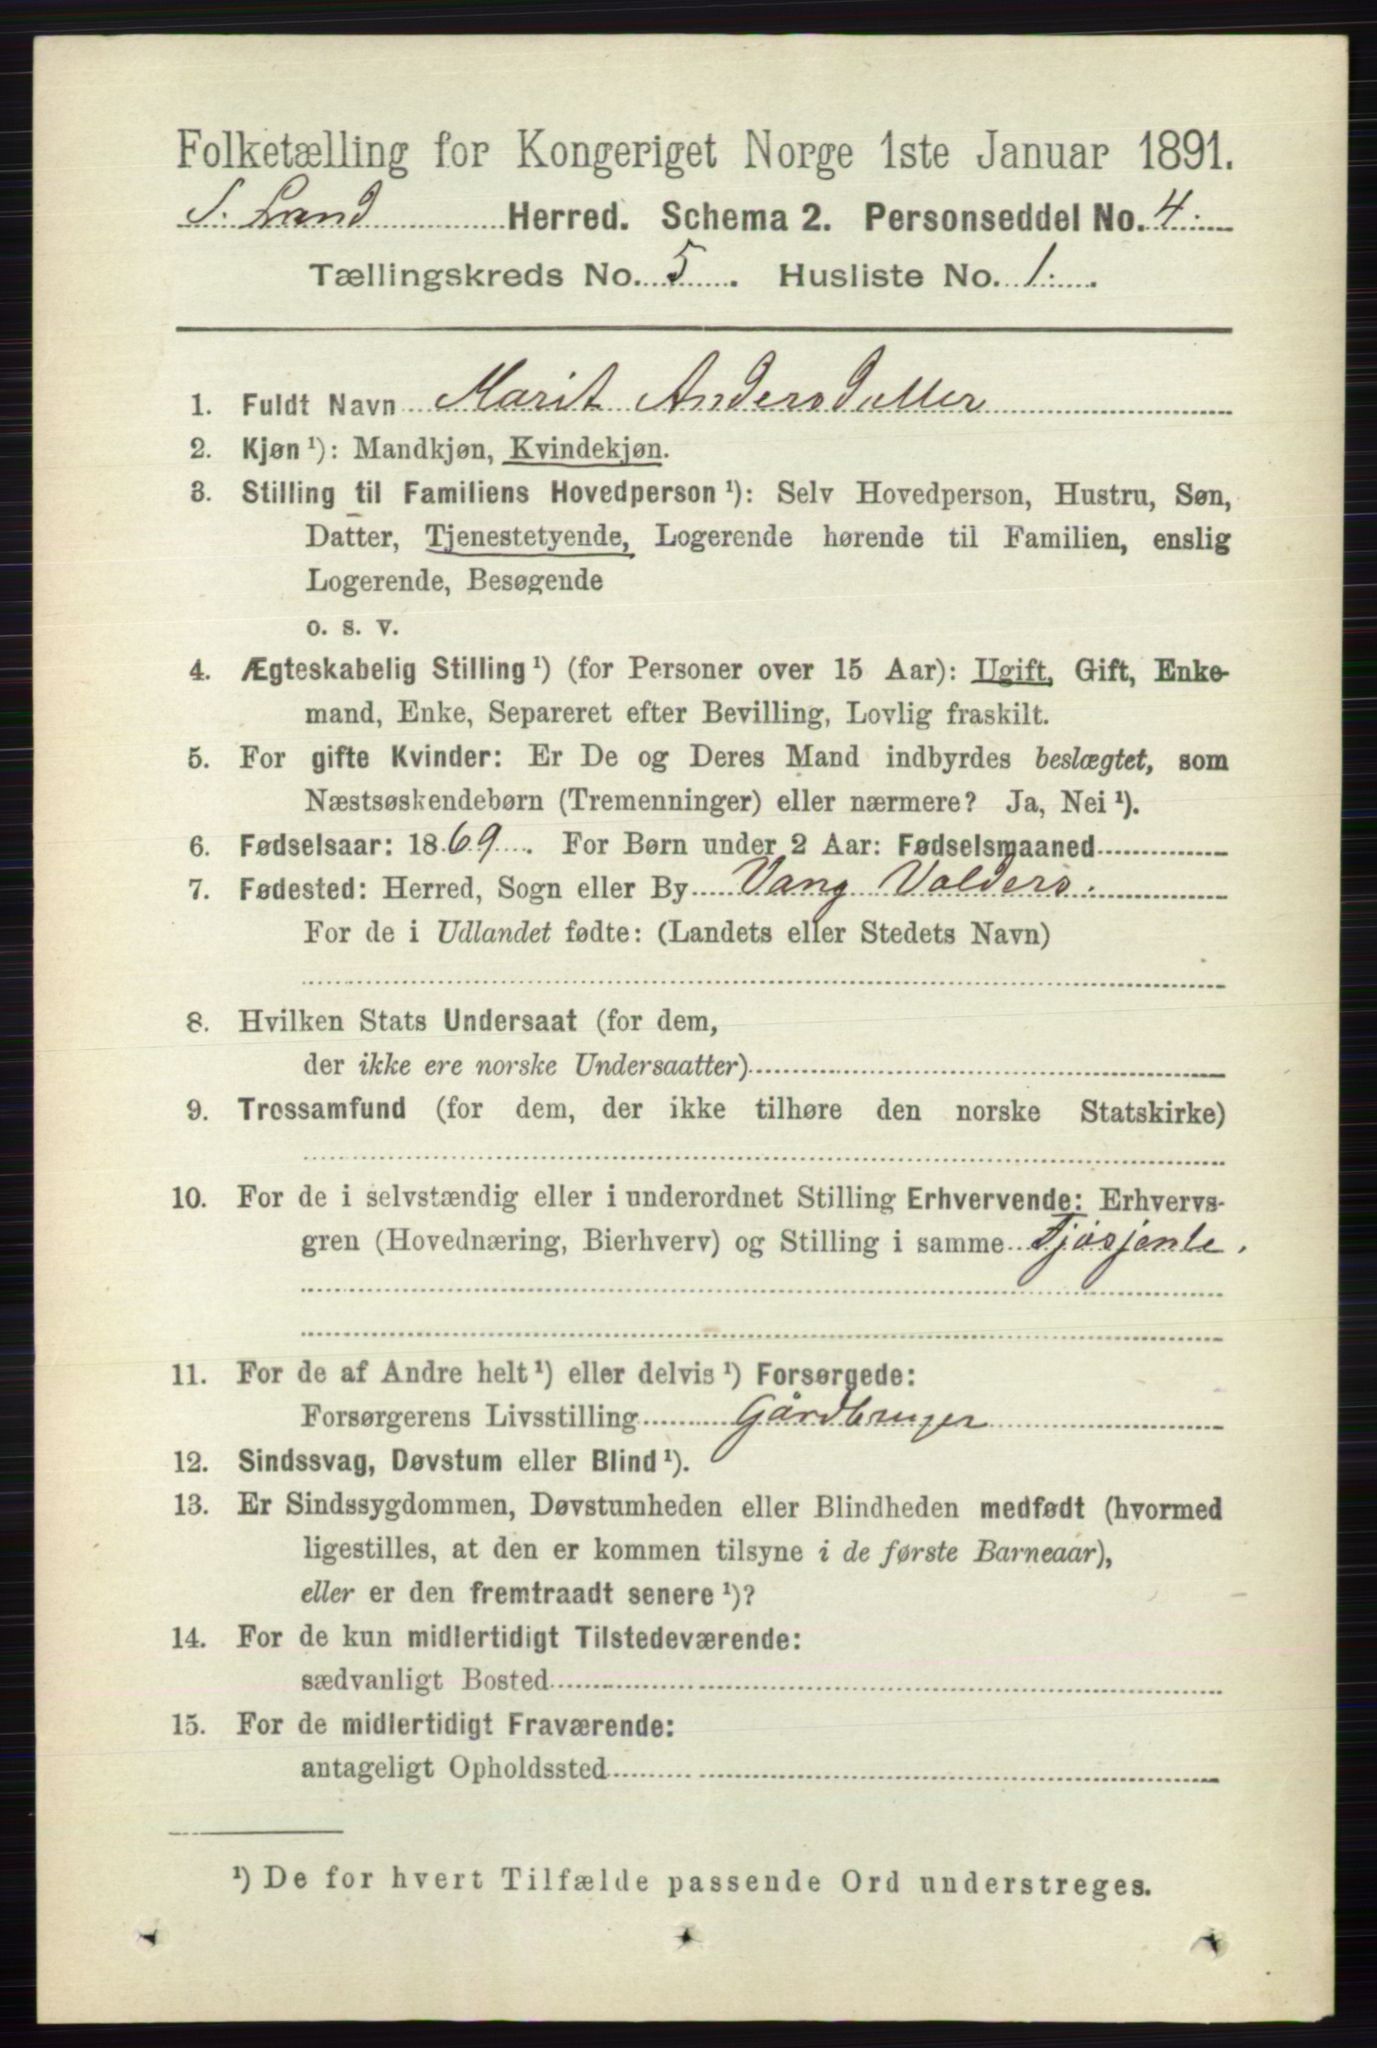 Folketælling for Kongeriget Norge 1ste Januar 1891.
S. Land Herred. Schema 2. Personseddel No. 4.
Tællingskreds No. 5. Husliste No. 1.
1. Fuldt Navn Marit Andersdatter
2. Kjøn ¹): Mandkjøn, Kvindekjøn.
3. Stilling til Familiens Hovedperson ¹): Selv Hovedperson, Hustru, Søn,
Datter, Tjenestetyende, Logerende hørende til Familien, enslig
Logerende, Besøgende
o. s. v.
4. Ægteskabelig Stilling ¹) (for Personer over 15 Aar): Ugift, Gift, Enke-
mand, Enke, Separeret efter Bevilling, Lovlig fraskilt.
5. For gifte Kvinder: Er De og Deres Mand indbyrdes beslægtet, som
Næstsøskendebørn (Tremenninger) eller nærmere? Ja, Nei ¹).
6. Fødselsaar: 1869. For Børn under 2 Aar: Fødselsmaaned
7. Fødested: Herred, Sogn eller By Vang Valders.
For de i Udlandet fødte: (Landets eller Stedets Navn)
8. Hvilken Stats Undersaat (for dem,
der ikke ere norske Undersaatter)
9. Trossamfund (for dem, der ikke tilhøre den norske Statskirke)
10. For de i selvstændig eller i underordnet Stilling Erhvervende: Erhvervs-
gren (Hovednæring, Bierhverv) og Stilling i samme Fjøsjente.
11. For de af Andre helt ¹) eller delvis ¹) Forsørgede:
Forsørgerens Livsstilling Gårdbruger
12. Sindssvag, Døvstum eller Blind ¹).
13. Er Sindssygdommen, Døvstumheden eller Blindheden medfødt (hvormed
ligestilles, at den er kommen tilsyne i de første Barneaar),
eller er den fremtraadt senere ¹)?
14. For de kun midlertidigt Tilstedeværende:
sædvanligt Bosted
15. For de midlertidigt Fraværende:
antageligt Opholdssted
¹) De for hvert Tilfælde passende Ord understreges.